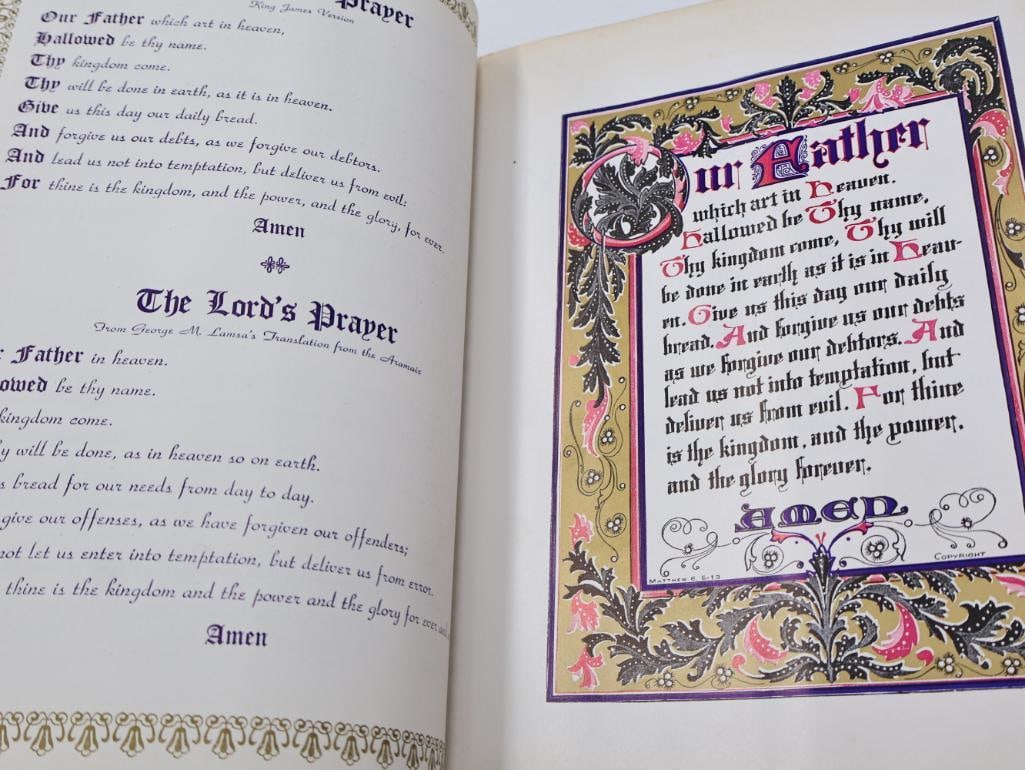 Prayer
King James Version
Our Father which art in heaven,
Hallowed be thy name.
Thy kingdom come.
Thy will be done in earth, as it is in heaven.
Give us this day our daily bread.
And forgive us our debts, as we forgive our debtors.
And lead us not into temptation, but deliver us from evil:
For thine is the kingdom, and the power, and the glory, for ever.
Amen
The Lord's Prayer
From George M. Lamsa's Translation from the Aramaic
Father in heaven.
owed be thy name.
kingdom come.
will be done, as in heaven so on earth.
bread for our needs from day to day.
give our offenses, as we have forgiven our offenders;
not let us enter into temptation, but deliver us from error.
thine is the kingdom and the power and the glory for ever
Amen
Our Father
which art in heaven.
Hallowed be Thy name,
Thy kingdom come, Thy will
be done in earth as it is in Heav-
en. Give us this day our daily
bread. And forgive us our debts
as we forgive our debtors. And
lead us not into temptation, but
deliver us from evil. For thine
is the kingdom, and the power,
and the glory forever.
AMEN
MATTHEW 6, 5-13
COPYRIGHT